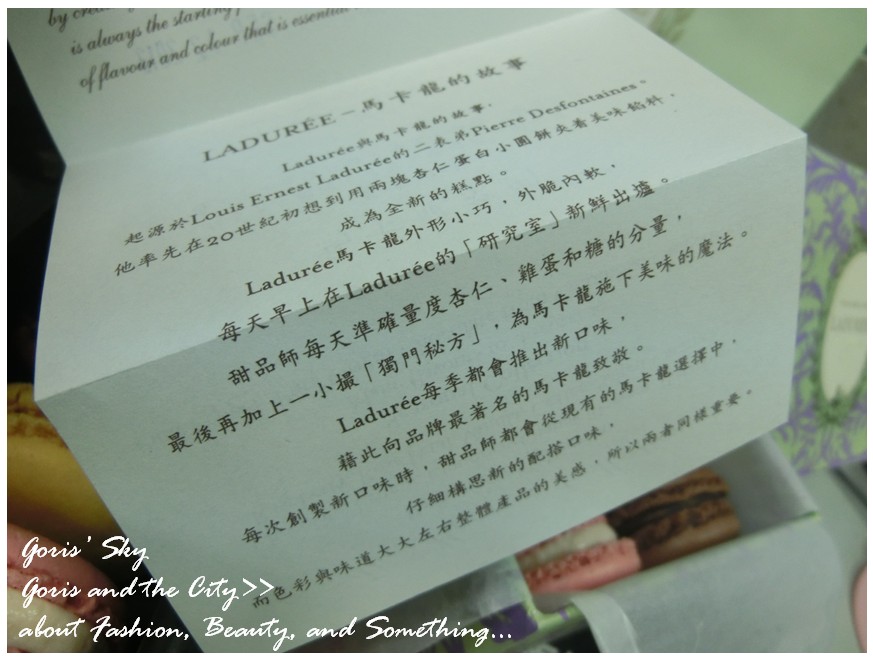 by crea
is always the starting p
of flavour and colour that is essential
LADURÉE－馬卡龍的故事
Ladurée與馬卡龍的故事，
起源於Louis Ernest Ladurée的二表弟Pierre Desfontaines。
他率先在20世紀初想到用兩塊杏仁蛋白小圓餅夾着美味餡料，
成為全新的糕點。
Ladurée馬卡龍外形小巧，外脆內軟，
每天早上在Ladurée的「研究室」新鮮出爐。
甜品師每天準確量度杏仁、雞蛋和糖的分量，
最後再加上一小撮「獨門秘方」，為馬卡龍施下美味的魔法。
Ladurée每季都會推出新口味，
藉此向品牌最著名的馬卡龍致敬。
每次創製新口味時，甜品師都會從現有的馬卡龍選擇中，
仔細構思新的配搭口味，
而色彩與味道大大左右整體產品的美感，所以兩者同樣重要。
Goris' Sky
Goris and the City>>
about Fashion, Beauty, and Something...